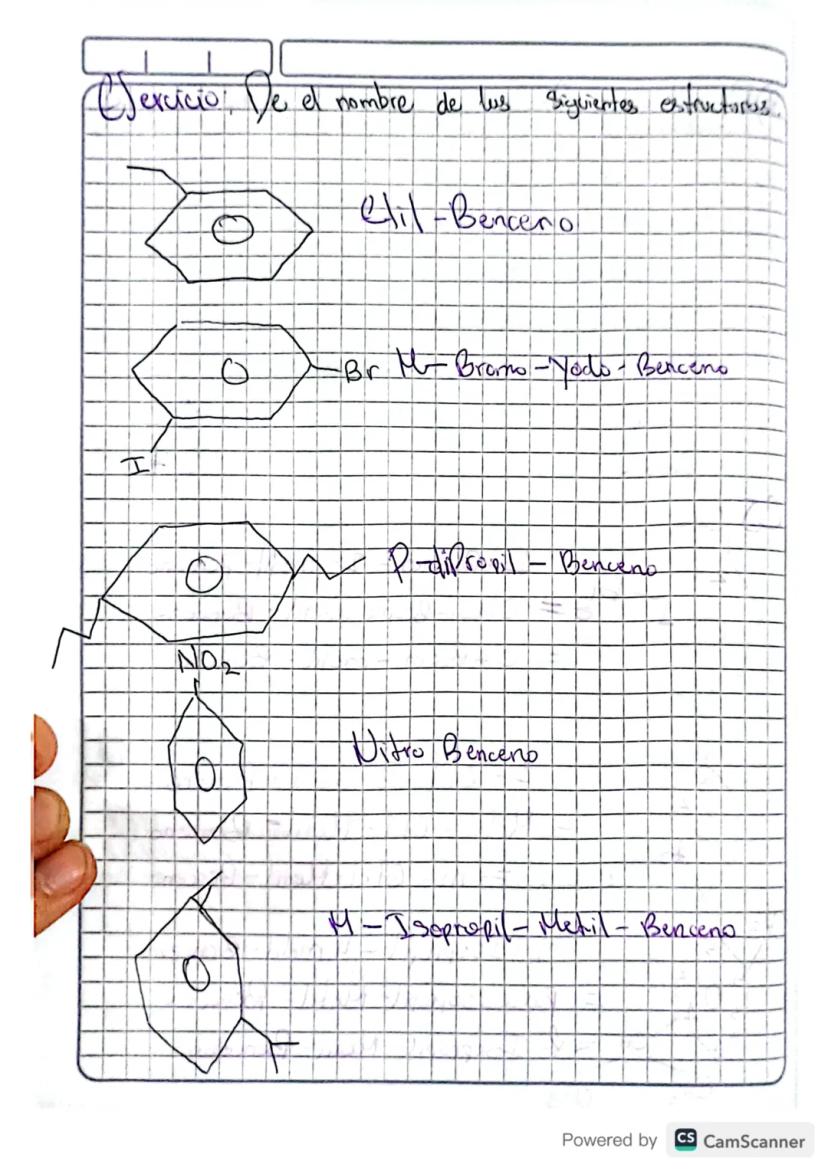 Ejercicio: De el nombre de las siguientes estructuras.
Etil-Benceno
Br M-Bromo-Yodo-Benceno
I
P-diPropil-Benceno
NO₂
Nitro Benceno
M-Isopropil-Metil-Benceno
Powered by CS CamScanner